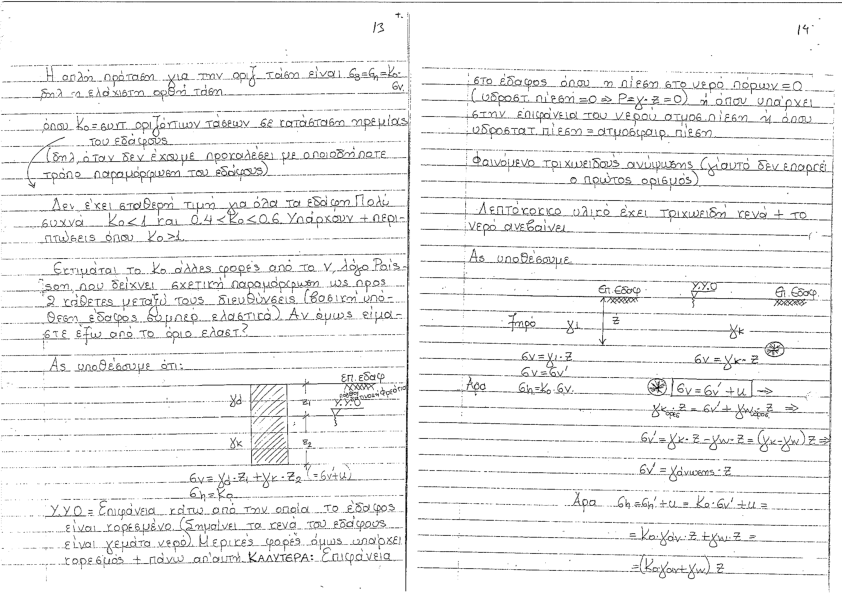 13
Η απλή πρόταση για την οριζ τάση είναι σ3=σh=K0·σv
δηλ η ελάχιστη ορθή τάση.
όπου K0=συντ. οριζόντιων τάσεων σε κατάσταση ηρεμίας
του εδάφους
(δηλ, όταν δεν έχουμε προκαλέσει με οποιοδήποτε
τρόπο παραμόρφωση του εδάφους)
Δεν έχει σταθερή τιμή για όλα τα εδάφη. Πολύ
συχνά K0<1 και 0.4<K0<0.6. Υπάρχουν + περι-
πτώσεις όπου K0>1.
Εκτιμάται το K0 άλλες φορές από το ν, λόγο Pois-
son, που δείχνει σχετική παραμόρφωση ως προς
2 κάθετες μεταξύ τους διευθύνσεις (βασική υπό-
θεση έδαφος συμπερ. ελαστικά). Αν όμως είμα-
στε έξω από το όριο ελαστ.?
Ας υποθέσουμε ότι:
επ. εδαφ
γd z1 Υ.Υ.Ο
γκ z2
σv = γd·z1 + γκ·z2 (=σv'+u)
σh=K0
Υ.Υ.Ο = Επιφάνεια κάτω από την οποία το έδαφος
είναι κορεσμένο. (Σημαίνει τα κενά του εδάφους
είναι γεμάτα νερό). Μερικές φορές όμως υπάρχει
κορεσμός + πάνω απ'αυτή. ΚΑΛΥΤΕΡΑ: Επιφάνεια
14
στο έδαφος όπου η πίεση στο νερό πόρων=0
(υδροστ. πίεση=0 ⇒ P=γ·z=0) ή όπου υπάρχει
στην επιφάνεια του νερού ατμοσ. πίεση ή όπου
υδροστατ. πίεση = ατμοσφαιρ. πίεση.
Φαινόμενο τριχωειδούς ανύψωσης (γι'αυτό δεν επαρκεί
ο πρώτος ορισμός)
Λεπτόκοκκο υλικό έχει τριχωειδή κενά + το
νερό ανεβαίνει.
Ας υποθέσουμε
Επ. Εδαφ Υ.Υ.Ο Επ. Εδαφ.
Ξηρό γd z γκ
σv = γd·z σv = γκ·z ⊛
σv = σv'
Άρα σh=K0·σv ⊛ σv=σv'+u ⇒
γκορεσ·z = σv' + γw·z ⇒
σv' = γκ·z - γw·z = (γκ-γw)z ⇒
σv' = γάνωσης·z
Άρα σh=σh'+u = K0·σv'+u =
= K0·γάν·z + γw·z =
= (K0γαν+γw) z